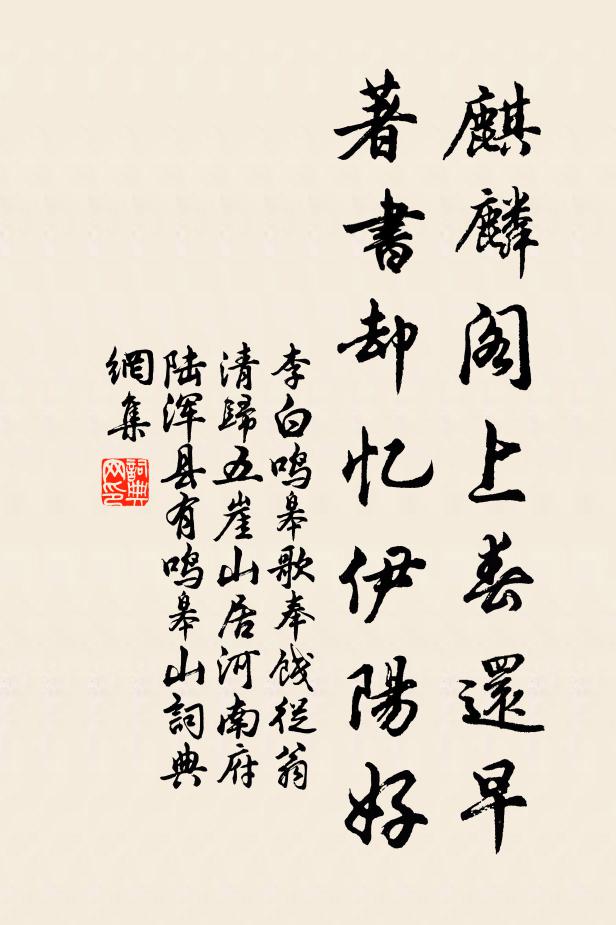 麒麟阁上春還早
著書却忆伊陽好
李白鸣皋歌奉饯從翁
清歸五崖山居河南府
陆浑县有鸣皋山詞典
網集
詞典
网印